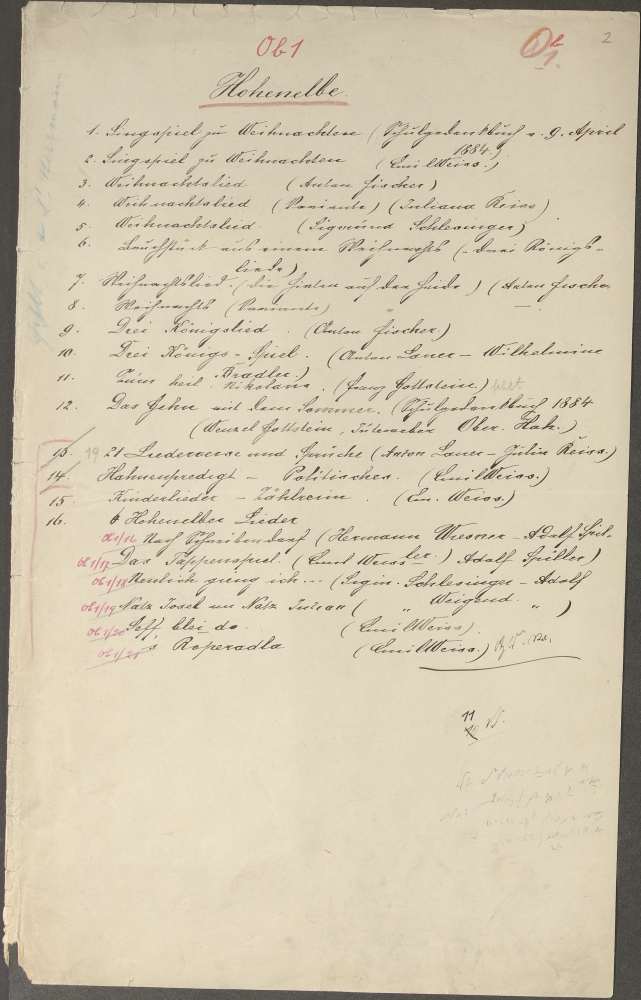 Ob1
2
Hohenelbe.
1. Singspiel zu Weihnachten (Schulgedenkbuch v. 9. April
1884.)
2. Singspiel zu Weihnachten (Emil Weiss.)
3. Weihnachtslied (Anton Fischer)
4. Weihnachtslied (Variante) (Juliana Reiss)
5. Weihnachtslied. (Sigmund Schlesinger)
6. Bruchstück aus einem Weihnachts (-Drei Königs-
liede)
7. Weihnachtslied. (Die Hirten auf der Heide) (Anton Fischer
8. Weihnachts (Variante) " —
9. Drei Königslied. (Anton Fischer.)
10. Drei Königs-Spiel. (Anton Lauer – Wilhelmine
Bradler.)
11. Zum heil. Nikolaus. (Franz Gottstein.)
12. Das Gehn mit dem Sommer. (Schulgedenkbuch 1884
(Wenzel Gottstein, Ober. Hoh.)
13. 19 21 Liederverse und Sprüche (Anton Lauer – Julia Reiss.)
14. Hahnenpredigt – Politisches. (Emil Weiss.)
15. Kinderlieder – Zählreim. (Em. Weiss.)
16. 6 Hohenelber Lieder
Ob1/16 Nach Schreibendorf (Hermann Wiesner – Adolf Spil-
ler.)
Ob1/17 Das Tappenspiel. Emil Weiss Adolf Spiller)
Ob1/18 Neulich gieng ich... (Sigm. Schlesinger – Adolf
Weigend.
Ob1/19 Natz Josel un Natz Julian ( " " )
Ob1/20 Seff blei do. (Emil Weiss)
Ob1/21 's Roperadla (Emil Weiss.)
11